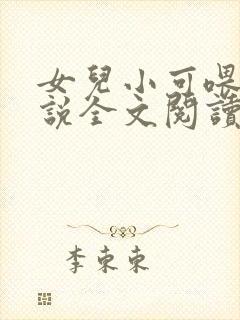 女兒小可喂
說全文閱讀
李東東